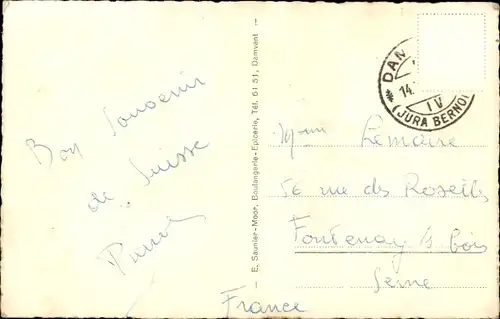 Bon Souvenir
de Suisse
E. Saunier-Moor, Boulangerie-Epicerie, Tél. 6151, Damvant
DAM
14.
IV
(JURA BERNOI
Mme Lemaire
56 rue des Roseilles
Fontenay s/ bois
Seine
France